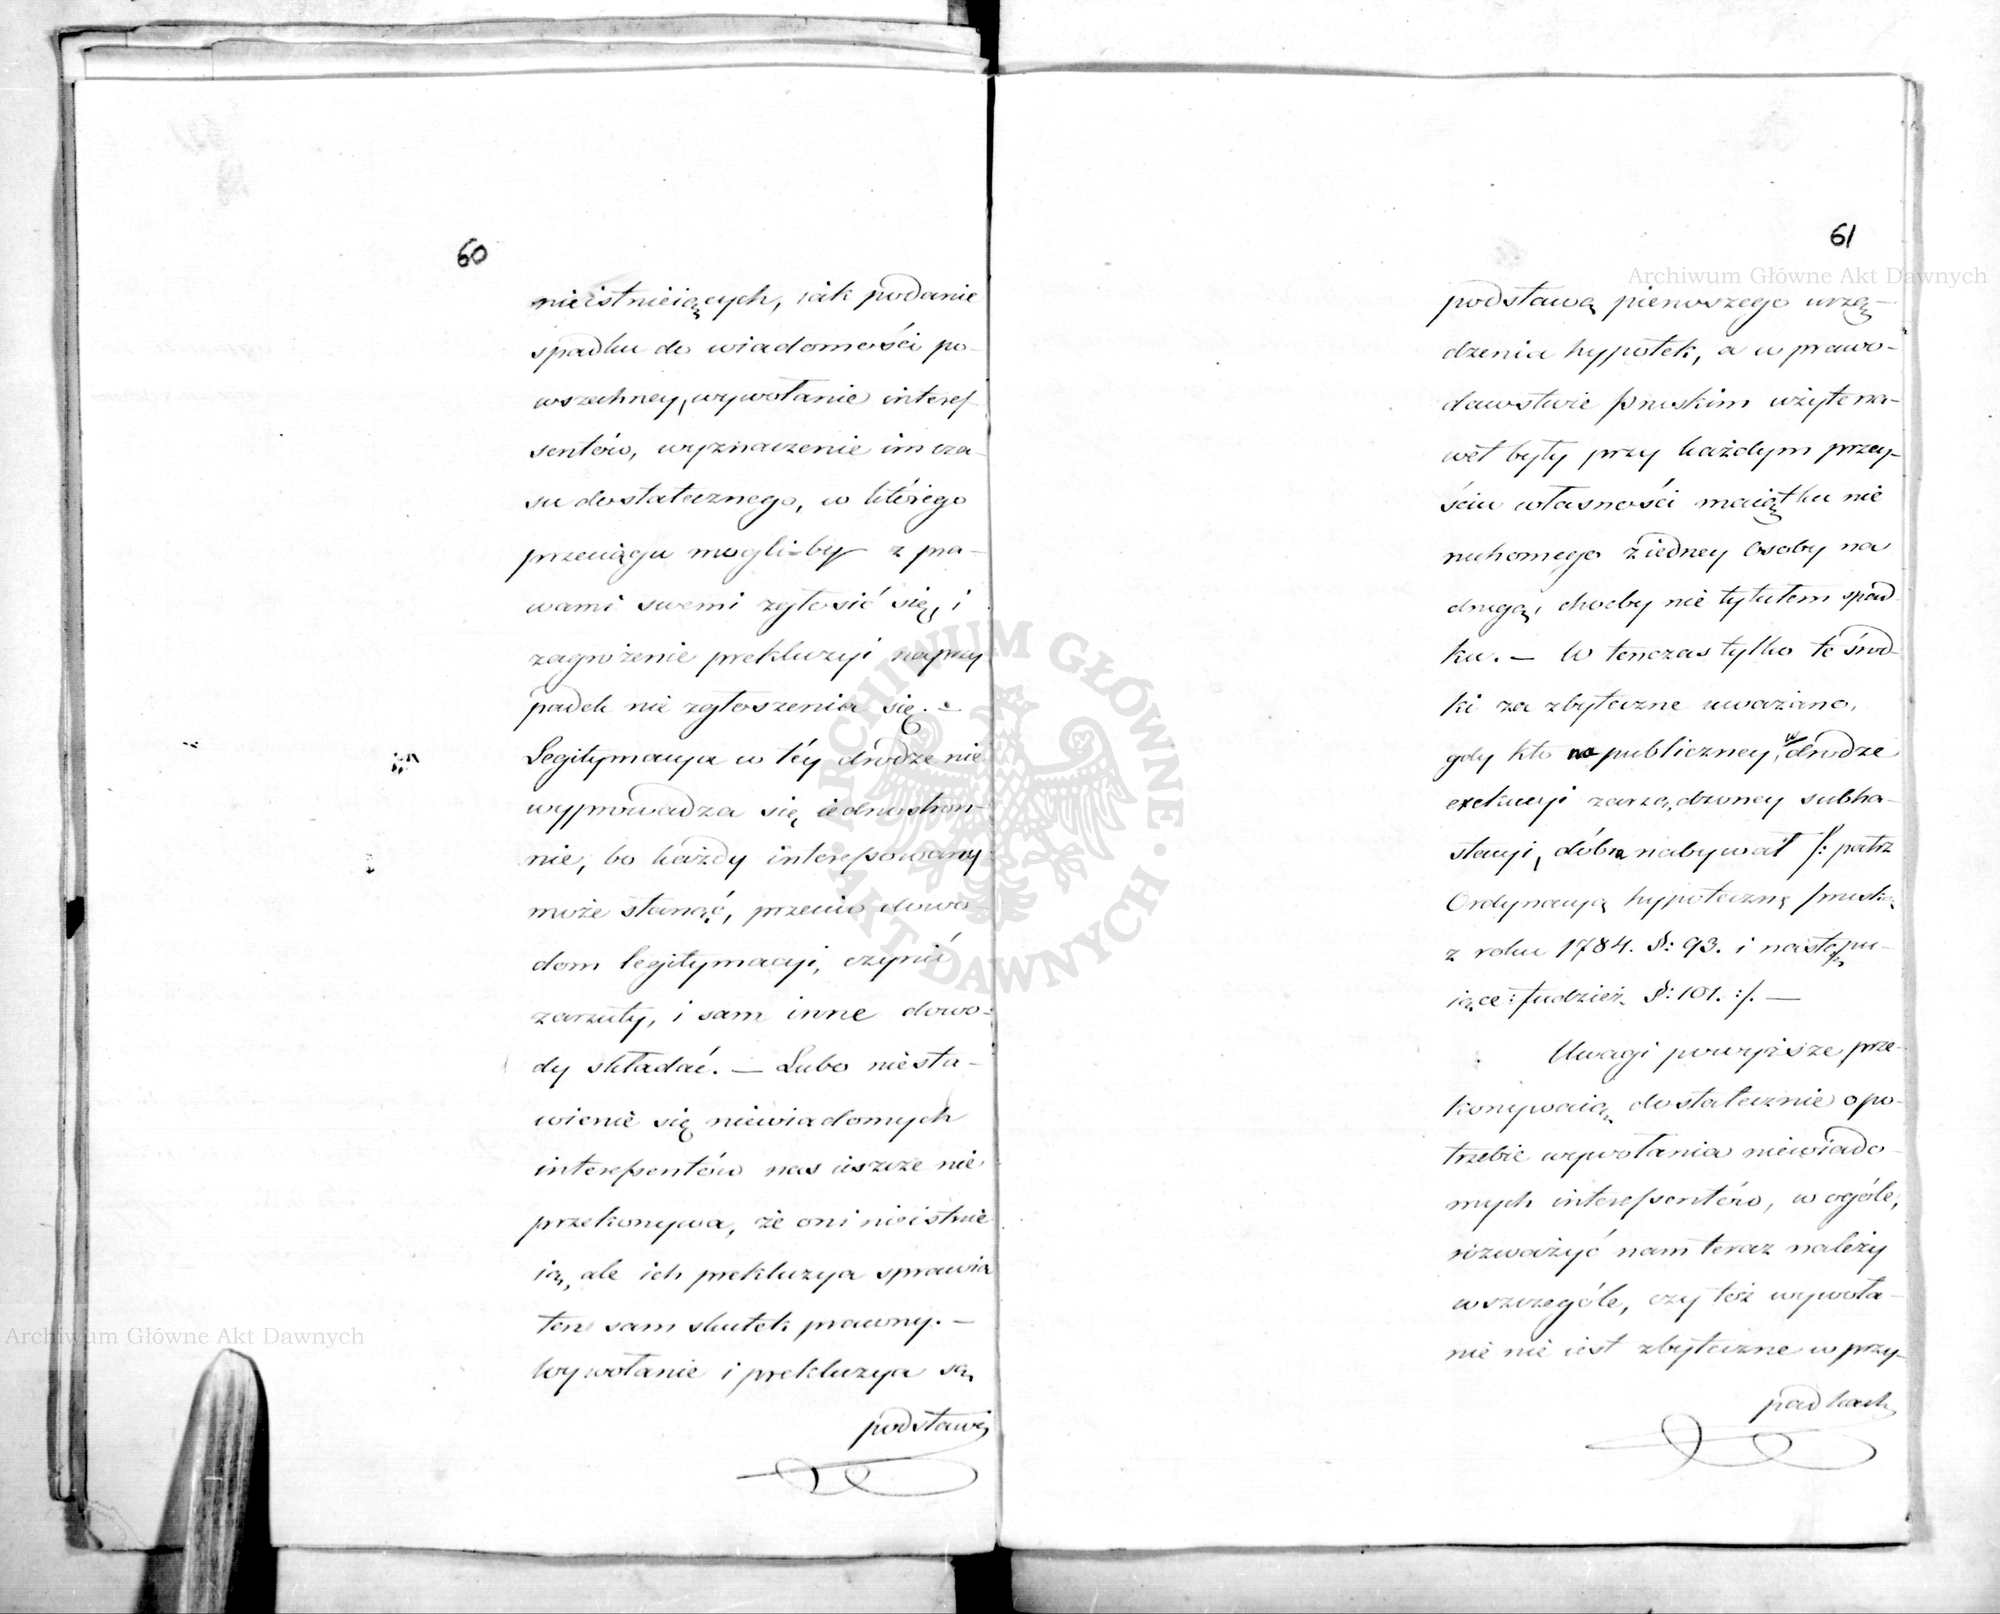 60
nieistnieiących, iak podanie
spadku do wiadomości po-
wszechney, wywołanie interes-
sentów, wyznaczenie im cza-
su dostatecznego, w którego
przeciągu mogli-by z pra-
wami swemi zgłosić się, i
zagrożenie prekluzyi na przy
padek nie zgłoszenia się. —
Legitymacya w téy drodze nie
wyprowadza się iednostron-
nie, bo każdy interessowany
może stanąć, przeciw dowo-
dom legitymacyi, czynić
zarzuty, i sam inne dowo-
dy składać. — Lubo niesta-
wienie się niewiadomych
interessentów nas ieszcze nie
przekonywa, że oni nieistnie
ią, ale ich prekluzya sprawia
ten sam skutek prawny. —
Wywołanie i prekluzya są
podstawą
61
podstawą pierwszego urzą-
dzenia hypotek, a w prawo-
dawstwie pruskim użyte na-
wet były przy każdym przey-
ściu własności maiątku nie
ruchomego z iedney osoby na
drugą, choćby nie tytułem spad-
ku. — W tenczas tylko te środ-
ki za zbyteczne uważano,
gdy kto na publiczney, w drodze
exekucyi zarządzoney subha-
stacyi, dobra nabywał /: patrz
Ordynacyą hypoteczną pruską
z roku 1784. §: 93. i następu-
iące: tudzież §: 101. :/. —
Uwagi powyższe prze-
konywaią dostatecznie o po-
trzebie wywołania niewiado-
mych interessentów, w ogóle,
rozważyć nam teraz należy
w szczególe, czy też wywoła-
nie nie iest zbyteczne w przy-
padkach
Archiwum Główne Akt Dawnych
Archiwum Główne Akt Dawnych
ARCHIWUM GŁÓWNE · AKT DAWNYCH ·